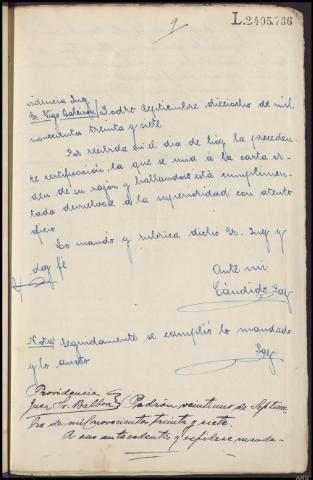 9
L.2405.736
Padrón Septiembre dieciocho de mil
novecientos treinta y siete
Por recibida en el dia de hoy la preceden
te certificación, la que se una a la carta or-
den de su razón y hallandose esta cumplimen-
tada devuelvase a la superioridad con atento
oficio
Lo mandó y rubrica dicho Sr. Juez y
doy fé
Ante mi
Cándido
Nota/ Seguidamente se cumplió lo mandado
y lo anoto
Providencia
Juez Sr. Balboa Padrón veintiuno de Septiem-
bre de mil novecientos treinta y siete.
A sus antecedentes y expidase manda-